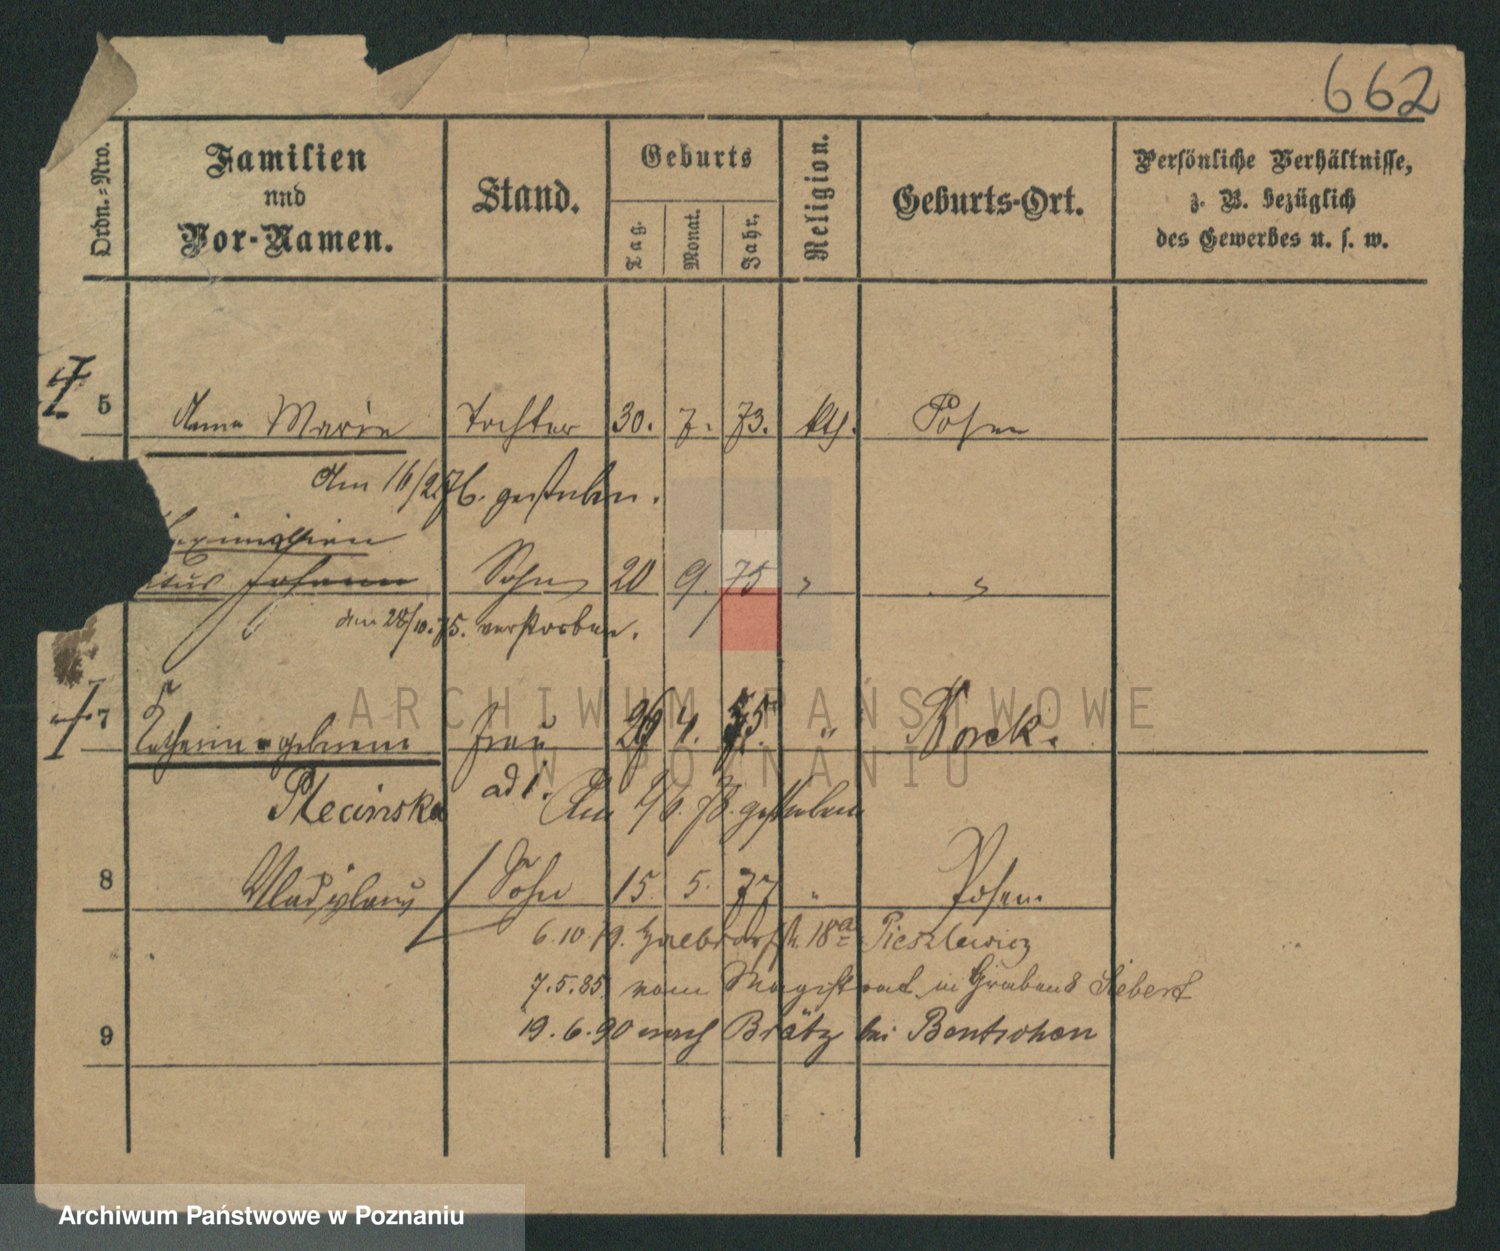 662
Ordn.-Nro.
Familien
und
Vor-Namen.
Stand.
Geburts
Tag.
Monat.
Jahr,
Religion.
Geburts-Ort.
Persönliche Verhältnisse,
z. B. bezüglich
des Gewerbes u. s. w.
5 Anna Marie Tochter 30. 7. 73. kth. Posen
Am 16/2.76. gestorben.
Sohn 20 9. 75 " "
den 28/10.75. verstorben.
7 geborene Frau 4. " Borek.
Plecinska ad 1. Am gestorben
8 Wladislaus Sohn 15. 5. 77 " Posen.
6.10.79. 18a Pieszlewicz
7.5.85. vom Magistrat in Graben 8 Siebert
9 19.6.90 nach Brätz bei Bentschen
ARCHIWUM PAŃSTWOWE
W POZNANIU
Archiwum Państwowe w Poznaniu